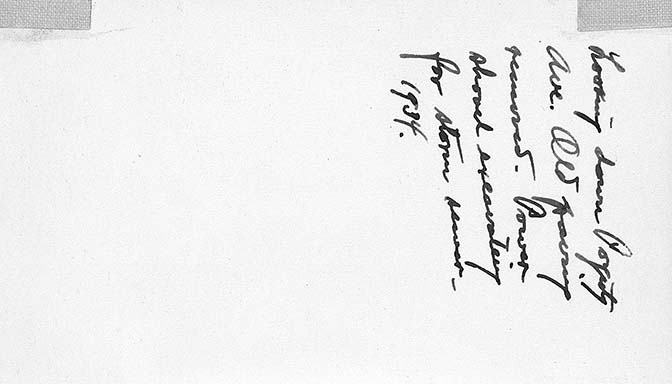 Looking down
Ave. Old paving
removed. Power
shovel excavating
for storm sewer.
1934.